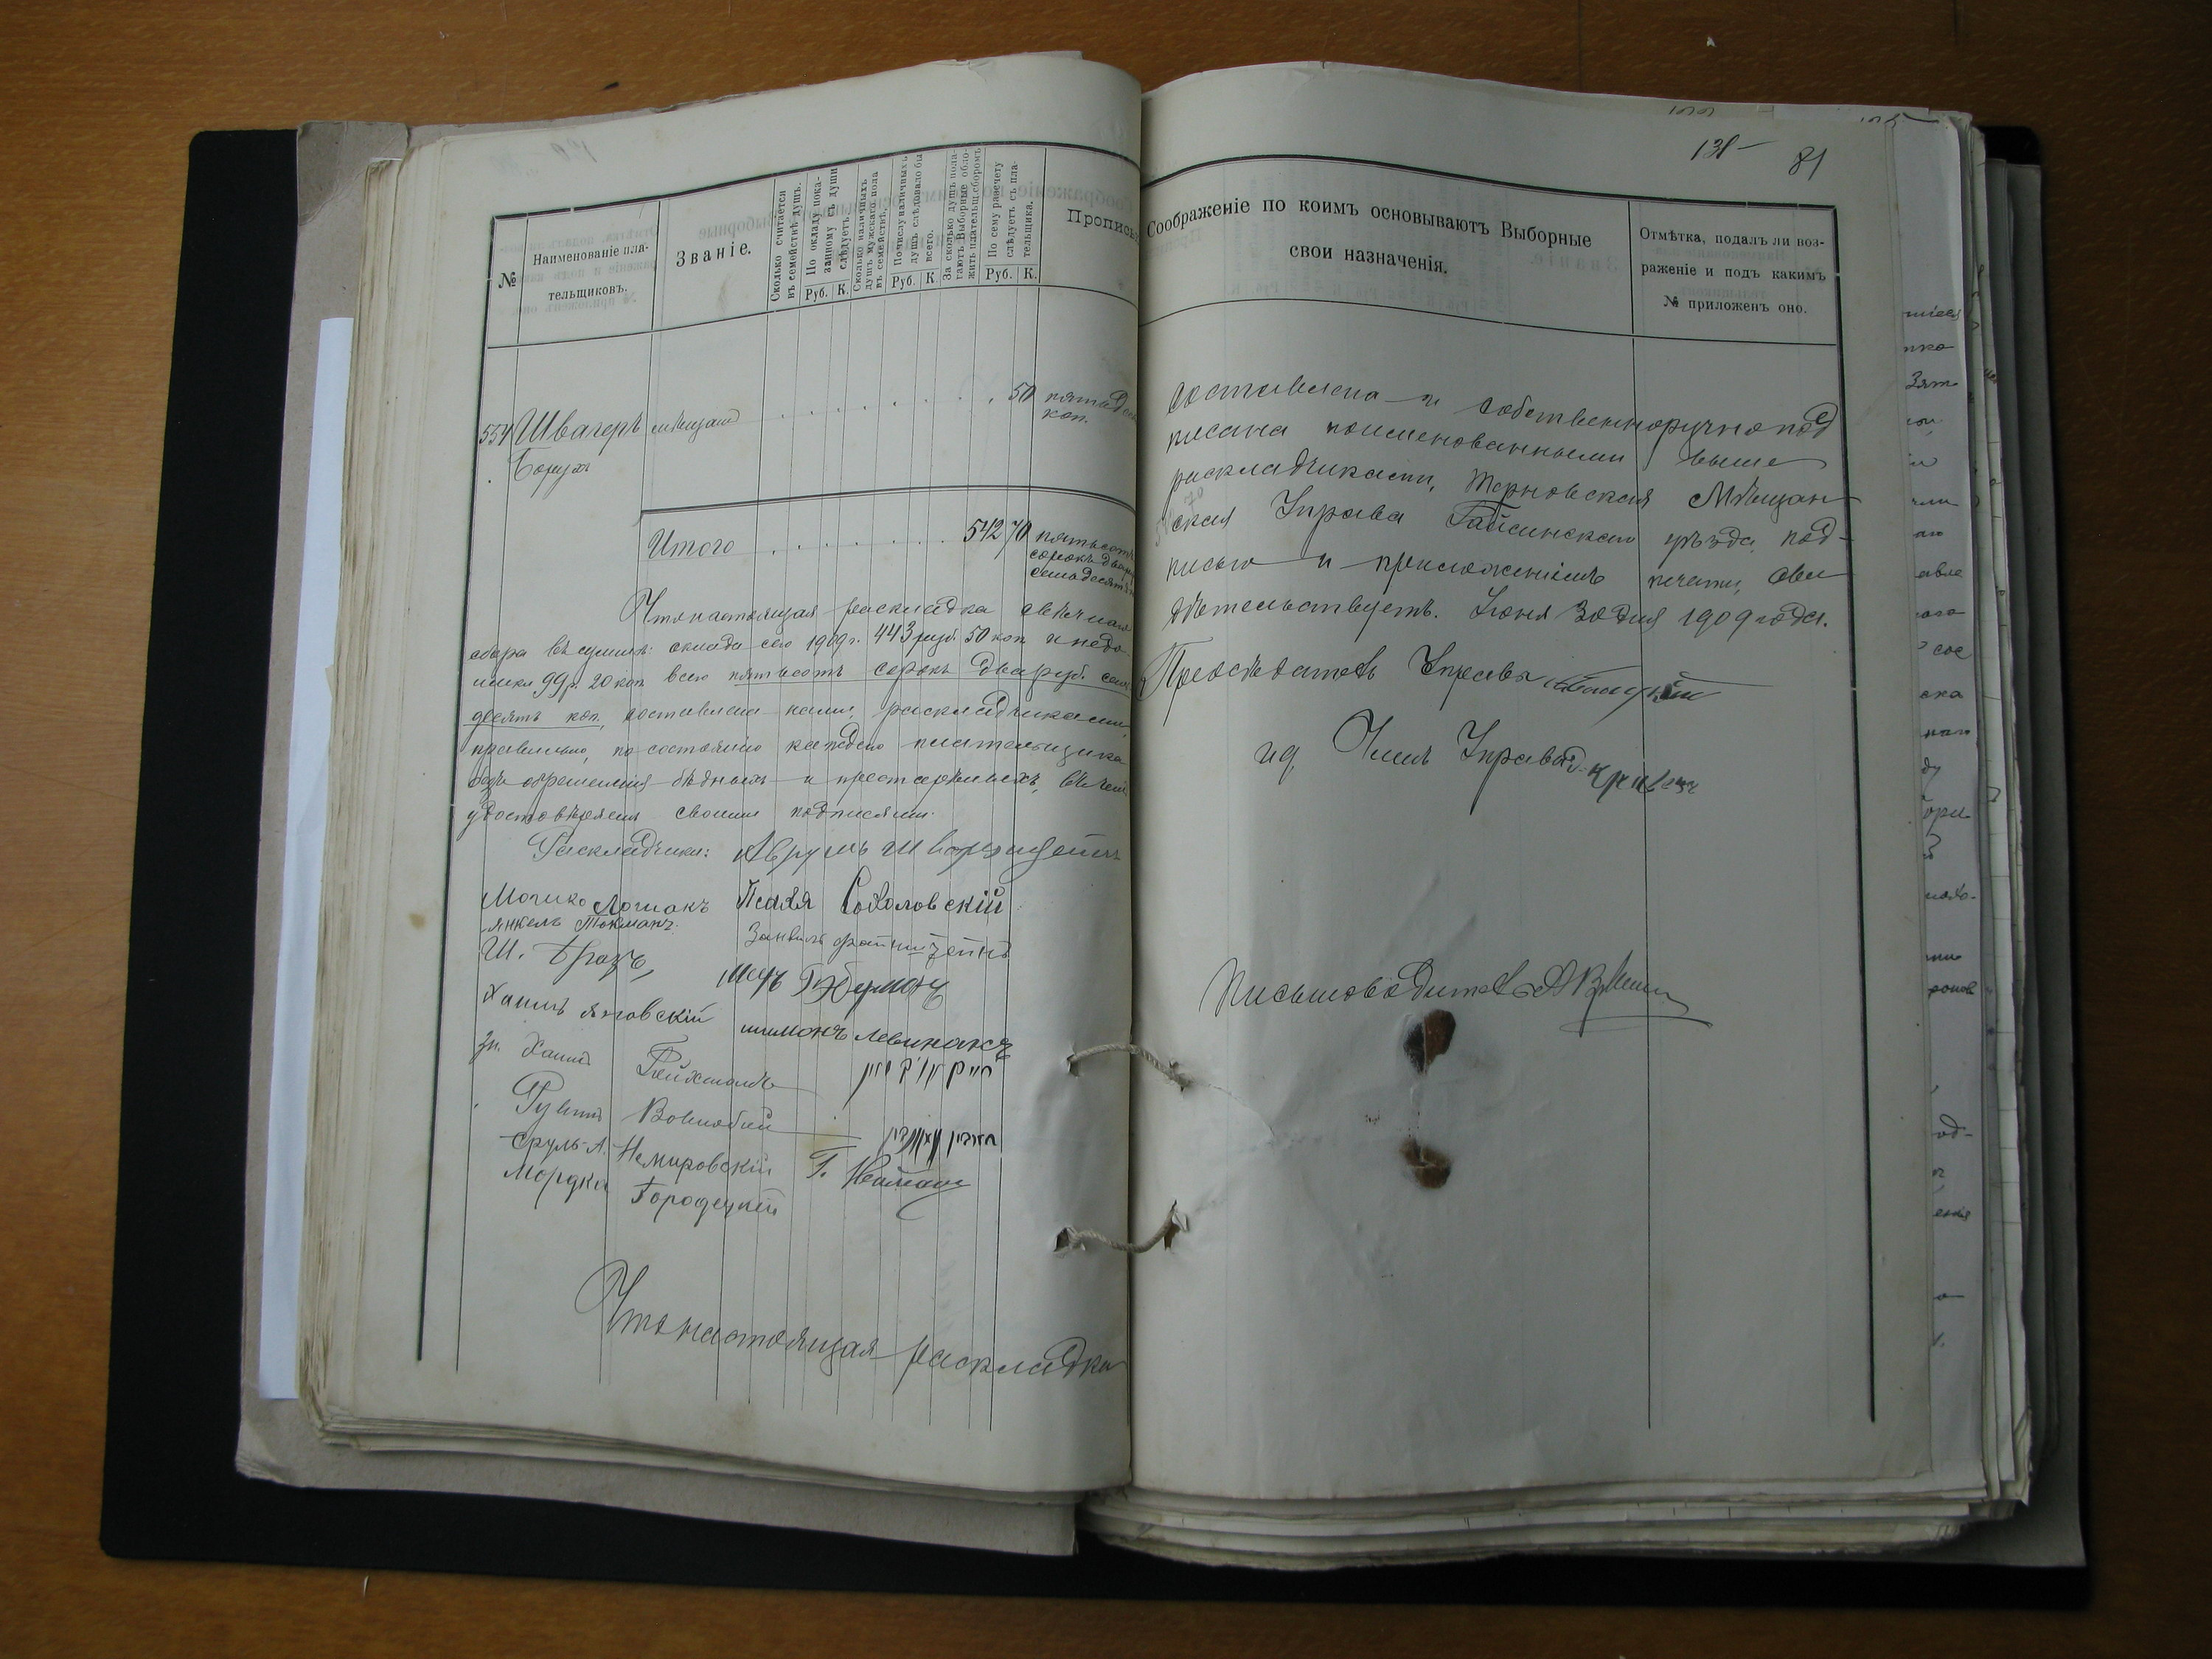 131 81
№
Наименованіе пла-
тельщиковъ.
Званіе.
Сколько считается
въ семействѣ душъ.
По окладу пока-
занному съ души
слѣдуетъ.
Руб. К.
Сколько наличныхъ
душъ мужскаго пола
въ семействѣ.
По числу наличныхъ
душъ слѣдовало бы
всего.
Руб. К.
За сколько душъ пола-
гаютъ Выборные обло-
жить плательщ. сборомъ
По сему расчету
слѣдуетъ съ пла-
тельщика.
Руб. К.
Прописью
554 Швагеръ мѣщан. 50 пятьдес.
Борухъ коп.
Итого 542 70 пятьсотъ
сорокъ два р.
семьдесят
Что настоящая раскладка свѣчнаго
сбора въ суммѣ: оклада сего 1909 г. 443 руб. 50 коп. и недо-
имки 99 р. 20 коп. всего пятьсотъ сорокъ два руб. семь
десятъ коп., составлена нами, раскладчиками,
правильно, по состоянію каждаго плательщика
безъ обремененія бѣдныхъ и престарѣлыхъ, въ чемъ
удостовѣряемъ своими подписями.
Раскладчики: Аврумъ Шварцштейнъ
Мошко Лошакъ Псахя Соколовскій
Янкель Токманъ. Занвиль Файнштейнъ
Ш. Брозъ
Хаимъ Яновскій шимонъ Левинзонъ
Зн. Хаимъ Гойхманъ
Рувинъ
Сруль-А. Немировскій Г. Нейман
Мордко Городецкій
Что настоящая раскладка
Соображеніе по коимъ основываютъ Выборные
свои назначенія.
Отмѣтка, подалъ ли воз-
раженіе и подъ какимъ
№ приложенъ оно.
составлена и собственноручно под
писана поименованными выше
раскладчиками, Терновская Мѣщан-
ская Управа Гайсинскаго уѣзда, под-
писью и приложеніемъ печати, сви
дѣтельствуетъ. Іюня 30 дня 1909 года.
Предсѣдатель Управы
ид Член Управы
Письмоводитель